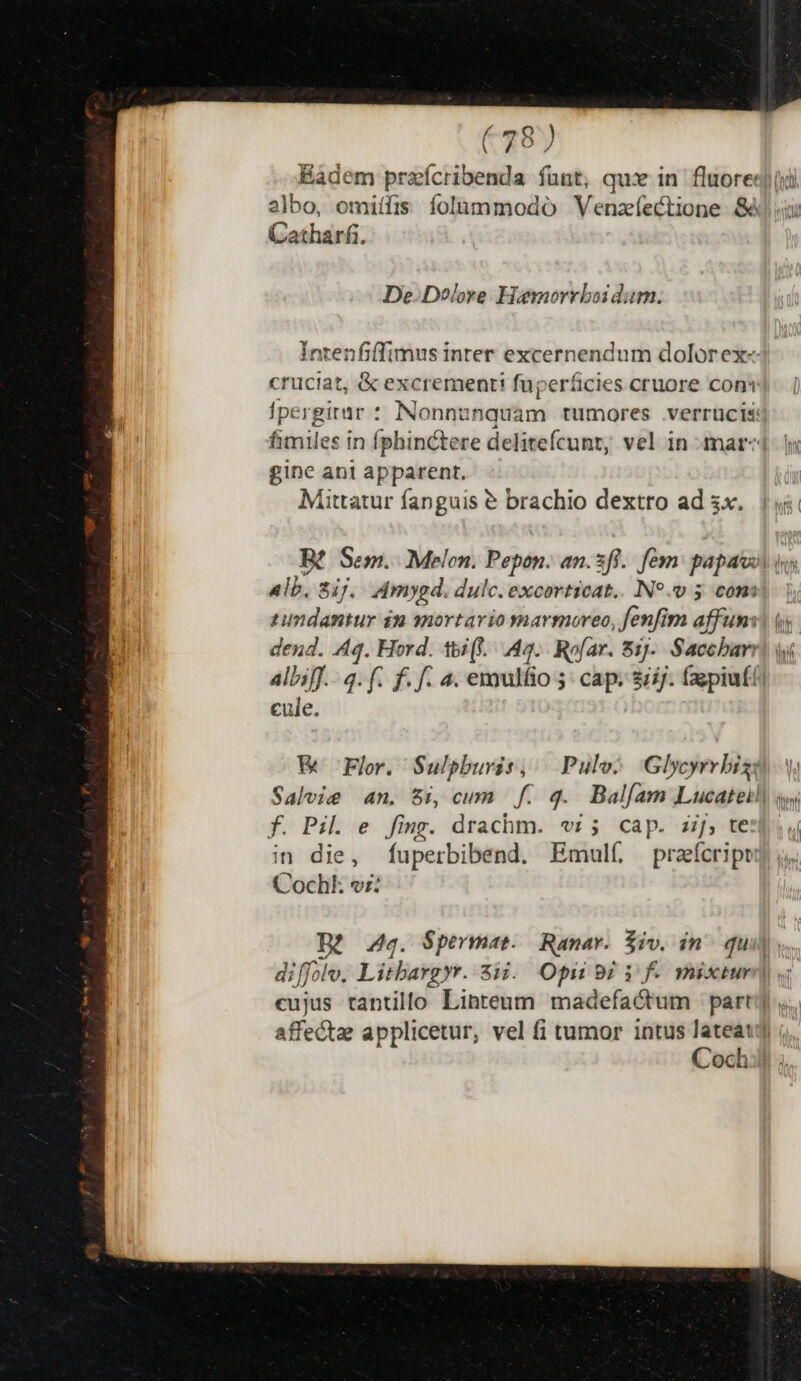 (78)
Eâdem præſcribenda ſunt, quæ in fluore
albo, omiſſis ſolummodò Venæſectione &
Catharſi.
De Dolore Hæmorrhoidum.
Intenſiſſimus inter excernendum dolor ex-
cruciat, & excrementi ſuperficies cruore con-
ſpergitur : Nonnunquàm tumores verrucis
ſimiles in ſphinctere deliteſcunt, vel in mar-
gine ani apparent.
Mittatur ſanguis è brachio dextro ad ℥x.
℞ Sem. Melon. Pepon. an. ℥ſſ. ſem papav
alb. ʒij. Amygd. dulc. excorticat. N°. v ; con
tundantur in mortario marmoreo, ſenſim affun
dend. Aq. Hord. ℔iſſ. Aq. Roſar. ℥ij. Sacchar
albiſſ. q. ſ. f. ſ. a. emulſio ; cap. ℥iij. ſæpiuſ
cule.
℞ Flor. Sulphuris, Pulv. Glycyrrhiz
Salviæ an. ʒi, cum ſ. q. Balſam Lucatel
f. Pil. e ſing. drachm. vi ; cap. iij, te
in die, ſuperbibend. Emulſ. præſcript
Cochl. vi:
℞ Aq. Spermat. Ranar. ℥iv. in qu
diſſolv. Lithargyr. ʒii. Opii ℈i ; f. mixtur
cujus tantillo Linteum madefactum part
affectæ applicetur, vel ſi tumor intus lateat
Coch